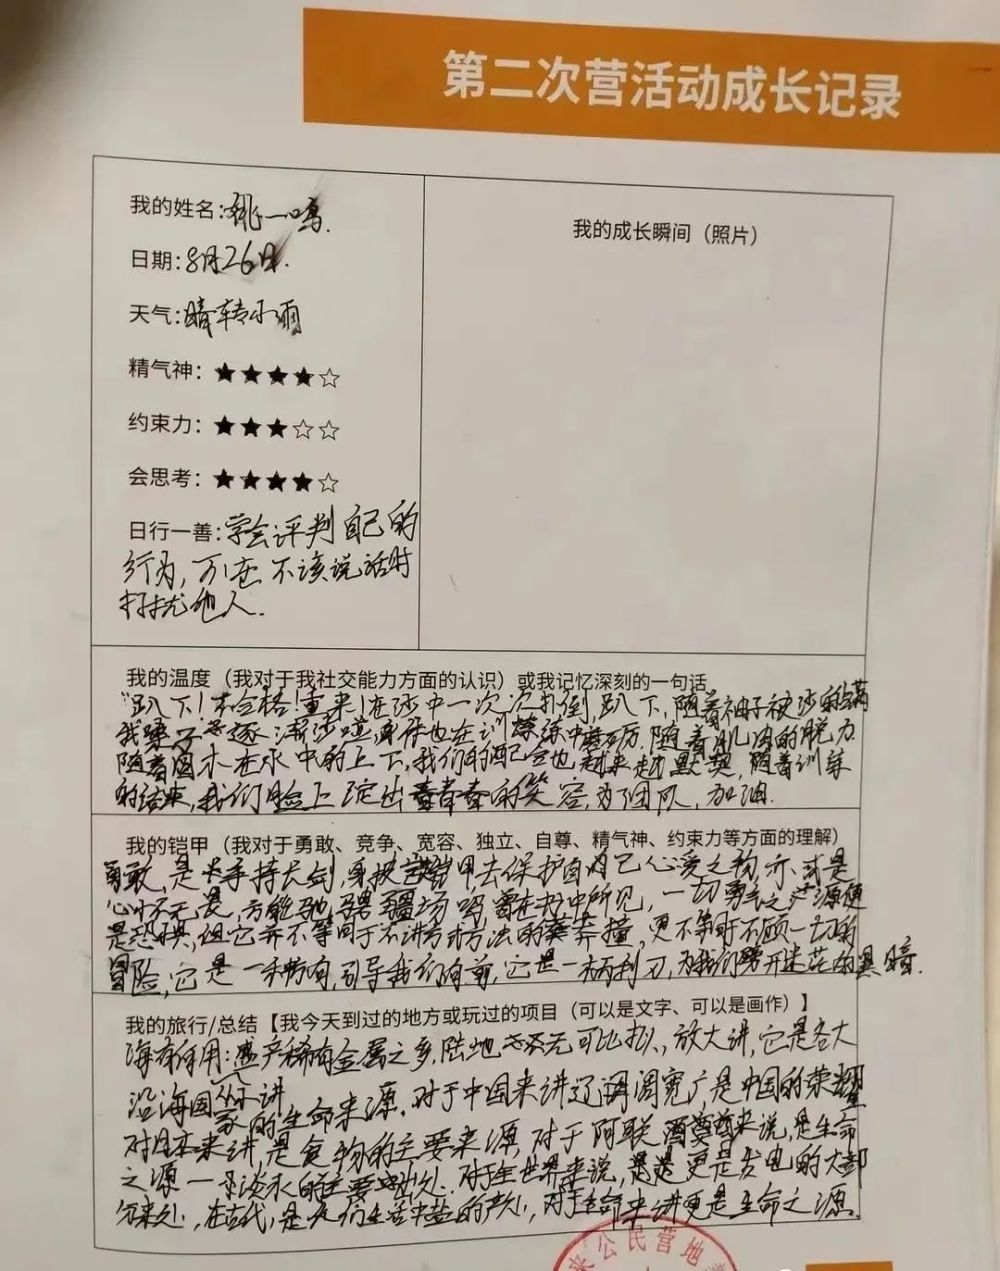 第二次营活动成长记录
我的姓名:姚一鸣.
我的成长瞬间（照片）
日期:8月26日.
天气:晴转小雨
精气神: ★★★★☆
约束力: ★★★☆☆
会思考: ★★★★☆
日行一善:学会评判自己的
行为, 不在不该说话时
打扰他人.
我的温度（我对于我社交能力方面的认识）或我记忆深刻的一句话
"趴下!不合格!重来!在沙中一次次扑倒,趴下,随着袖子被沙的填满
我嗓子逐渐沙哑,身体也在训练中磨厉.随着肌肉的脱力
随着圆木在水中的上下,我们的配合也越来越默契,随着训练
的结束,我们脸上绽出青春的笑容,为了团队,加油.
我的铠甲（我对于勇敢、竞争、宽容、独立、自尊、精气神、约束力等方面的理解）
勇敢,是手持长剑,身披铠甲去保护自己心爱之物,亦或是
心怀无畏,方能驰骋疆场吗,曾在书中所见,一切勇气之源便
是恐惧,但它并不等同于不讲方法的莽撞,更不等同不顾一切的
冒险,它是一种指引,引导我们向前,它是一柄利刃,为我们劈开迷茫的黑暗.
我的旅行/总结【我今天到过的地方或玩过的项目（可以是文字、可以是画作）】
海有何用:盛产稀有金属之乡,陆地无可比拟,放大讲,它是各大
沿海国家的生命来源.对于中国来讲辽阔宽广,是中国的荣耀
对日本来讲,是食物的主要来源,对于阿联酋来说,是生命
之源一淡水的主要出处.对于全世界来说,更是发电的大部
分来处,在古代,是人们生活中盐的产处,对于生命来讲更是生命之源.
公民营地